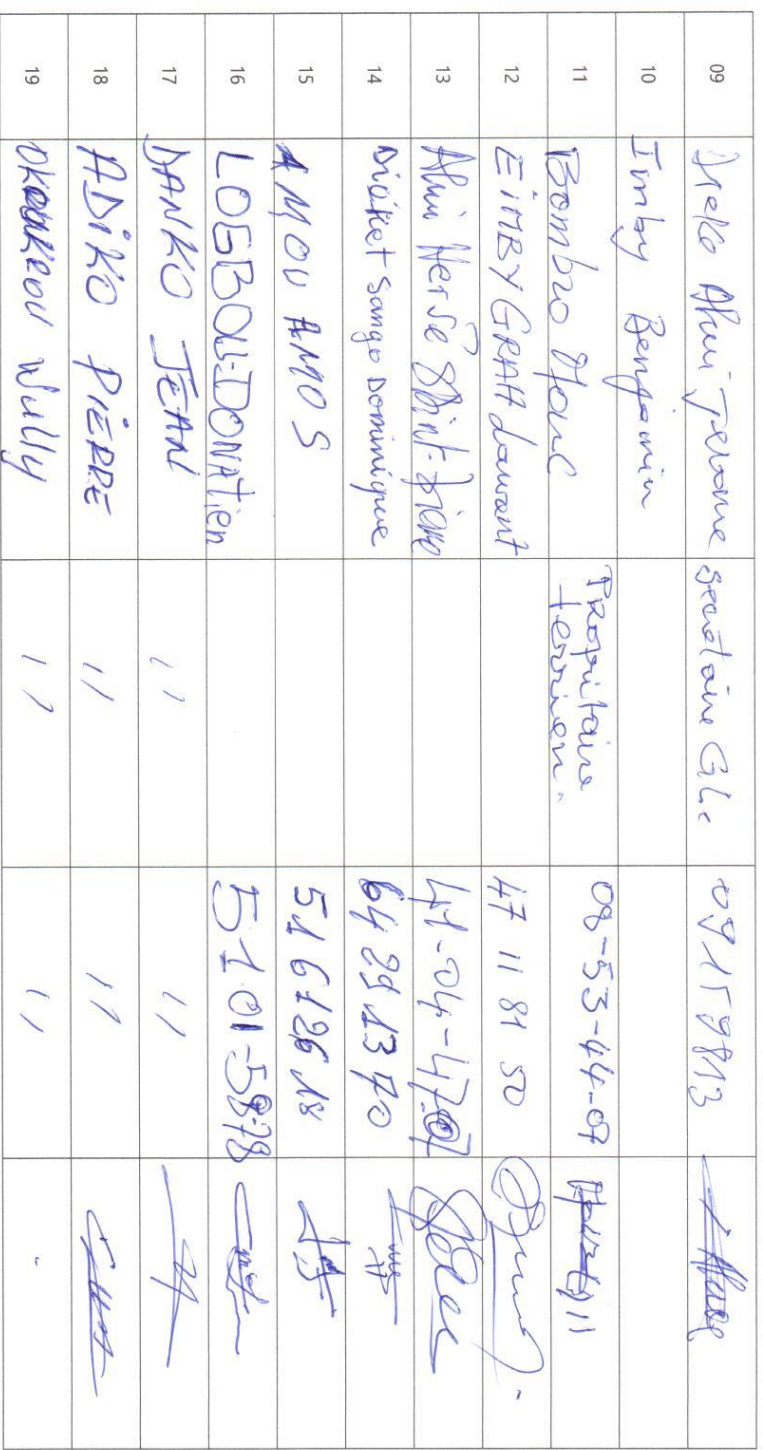 09 Ahui Jerome secrétaire 09159813
10 Imby Benjamin
11 Bombro Marc Propriétaire terrien. 08-53-44-07
12 EIMBY GRAH Laurent 47 11 81 50
13 Ahui Herve 41-04-47-07
14 Sango Dominique 64 29 13 70
15 AMOU AMOS
16 LOGBOU-DONATien 51-01-58-78
17 DANKO JEAN 11 11
18 ADIKO PIERRE 11 11
19 Willy 11 11